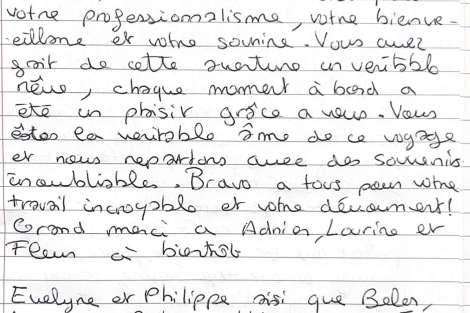 votre professionnalisme, votre bienve-
-eillance et votre sourire. Vous avez
fait de cette aventure un véritable
rêve, chaque moment à bord a
été un plaisir grâce a vous. Vous
êtes la véritable âme de ce voyage
et nous repartons avec des souvenirs
inoubliables. Bravo a tous pour votre
travail incroyable et votre dévouement!
Grand merci a Adrien, Laurine et
Fleur à bientôt
Evelyne et Philippe